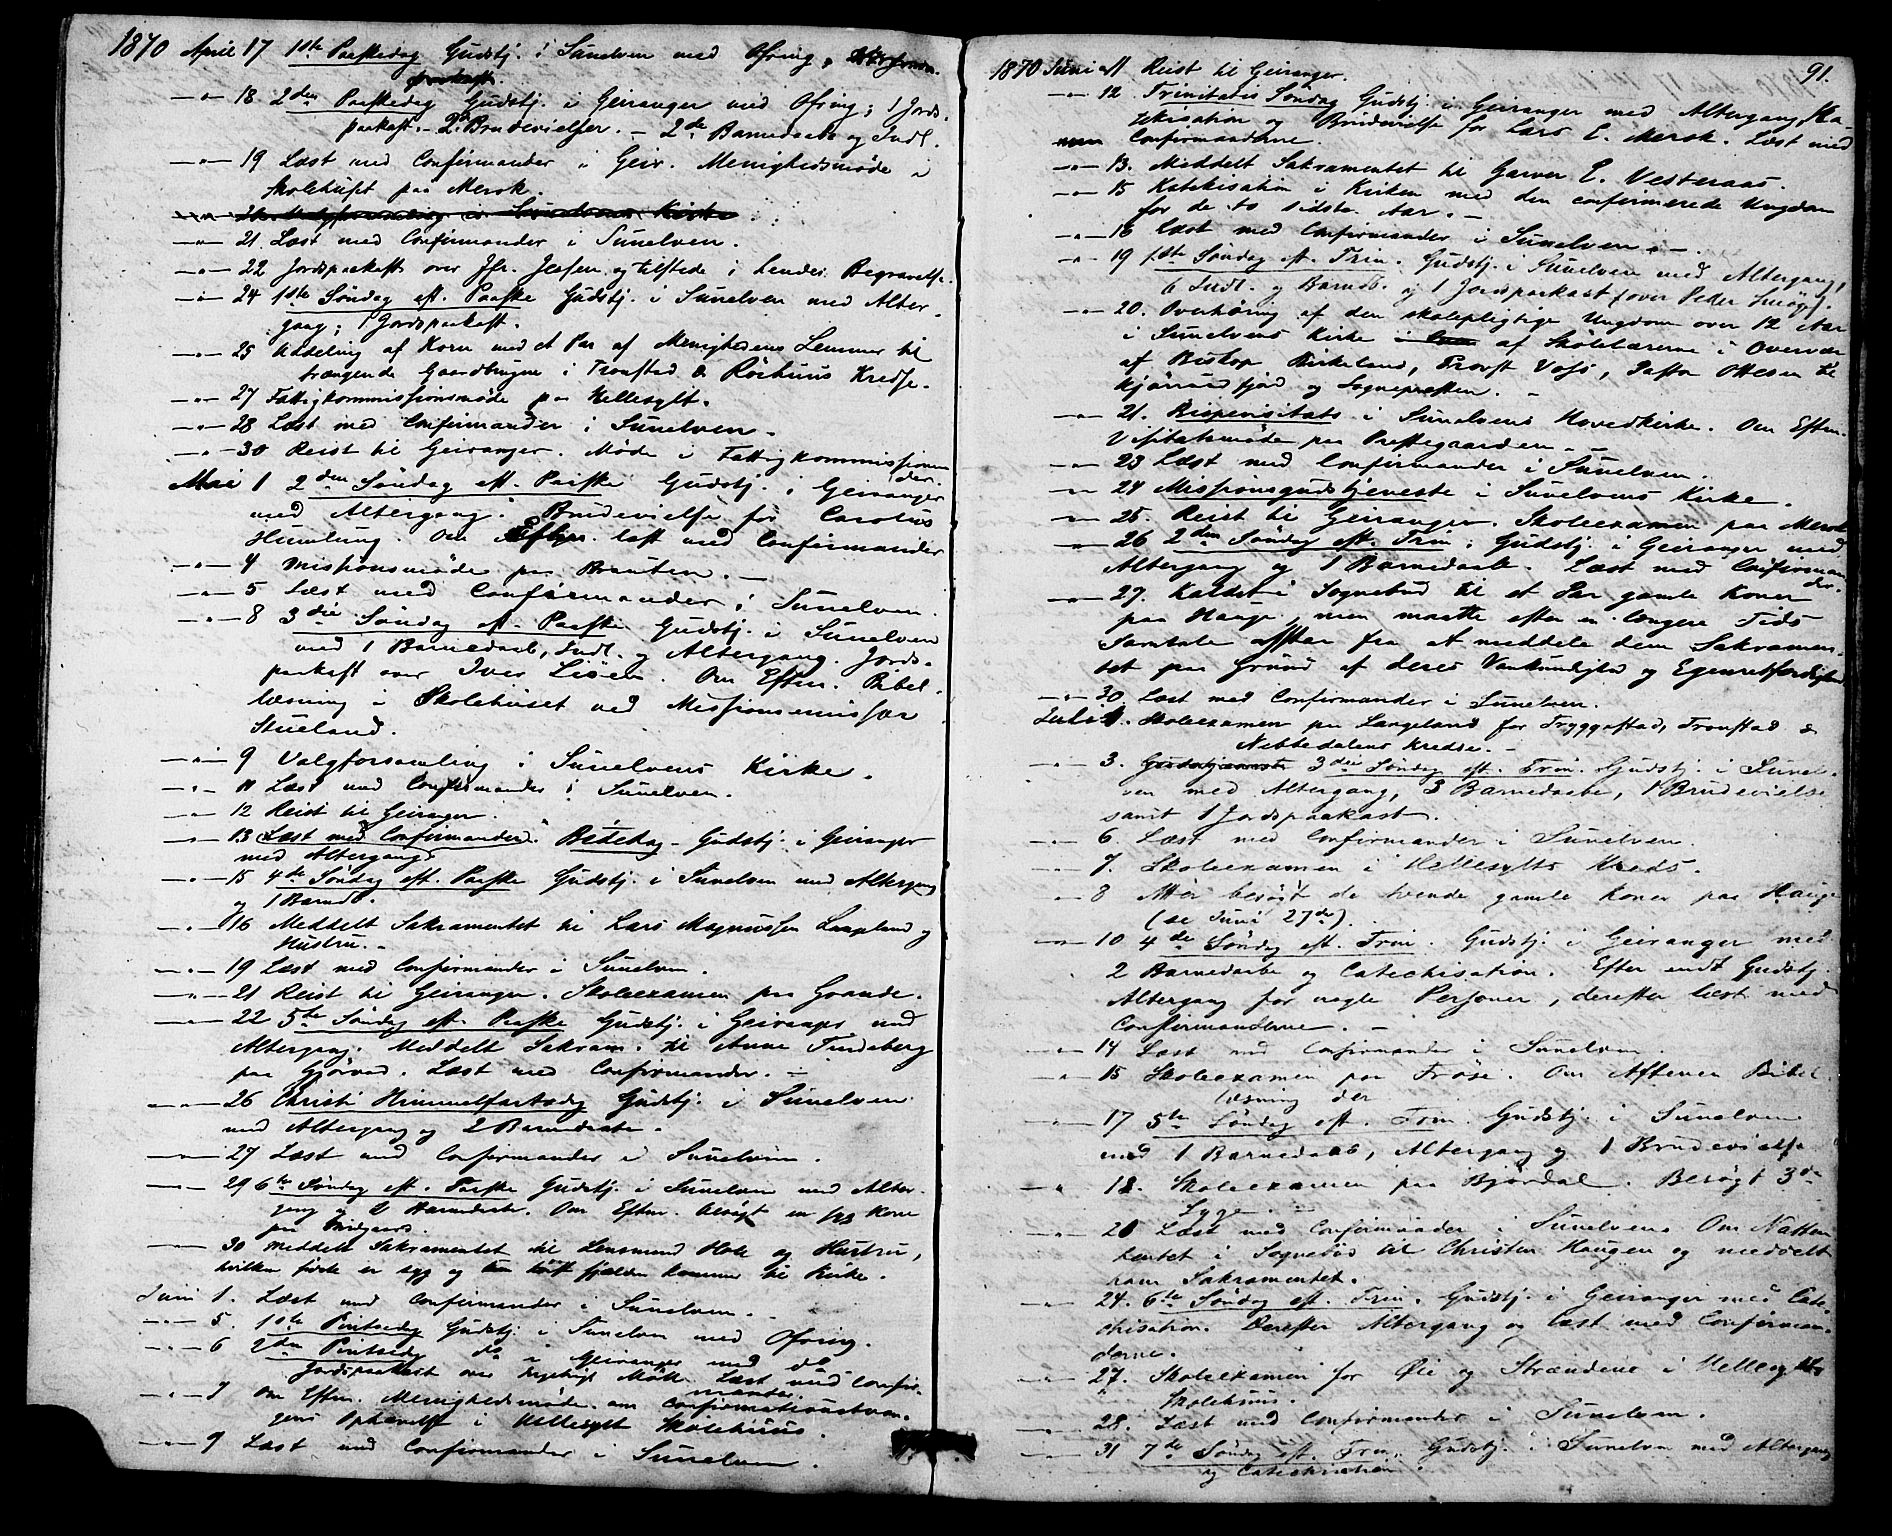 1870 April 17 1ste Paaskedag Gudstj. i Sunelven med Ofring,
—„— 18 2den Paaskedag Gudstj. i Geiranger med Ofring; 1 Jords-
paakast. – 2 Brudevielser. – 2de Barnedaab og Indl.
—„— 19 Læst med Confirmander i Geir. Menighedsmøde i
Skolehuset paa Merok.
—„— 21. Læst med Confirmander i Sunelven.
—„— 22 Jordspaakast over Jfr. Jersen og tilstede i hendes Begravelse.
—„— 24 1ste Søndag eft. Paaske Gudstj. i Sunelven med Alter-
gang; 1 Jordspaakast.
—„— 25 Uddeling af Korn med et Par af Menighedens Lemmer til
trængende Gaardbrugere i Tronstad & Rörhuus Kredse.
—„— 27 Fattigkommissionsmøde paa Hellesylt.
—„— 28 Læst med Confirmander i Sunelven.
—„— 30 Reist til Geiranger. Møde i Fattigkommissionen
der.
Mai 1 2den Søndag eft. Paaske Gudstj. i Geiranger
med Altergang. Brudevielse for Carolus
Humlung. Om Efterm. læst med Confirmander
—„— 4 Missionsmøde paa Braaten. —
—„— 5 Læst med Confirmander i Sunelven.
—„— 8 3die Søndag eft. Paaske Gudstj. i Sunelven
med 1 Barnedaab, Indl. og Altergang. Jords-
paakast over Iver Liöen. Om Efterm. Bibel-
læsning i Skolehuset ved Missionsemissær
Stueland.
—„— 9 Valgforsamling i Sunelvens Kirke.
—„— 11 Læst med Confirmander i Sunelven.
—„— 12 Reist til Geiranger.
—„— 13 (Læst med Confirmander). Bededag – Gudstj. i Geiranger
med Altergang
—„— 15 4de Søndag eft. Paaske Gudstj. i Sunelven med Altergang
og 1 Barnd.
—„— 16 Meddelt Sakramentet til Lars Magnussen Langland og
Hustru. –
—„— 19 Læst med Confirmander i Sunelven.
—„— 21 Reist til Geiranger. Skoleexamen paa Grande.
—„— 22 5te Søndag eft. Paaske Gudstj. i Geiranger med
Altergang. Meddelt Sakram. til Anne Tindeberg
paa Gjörvad. Læst med Confirmander. –
—„— 26 Christi Himmelfartsdag Gudstj. i Sunelven
med Altergang og 2 Barnedaabe.
—„— 27 Læst med Confirmander i Sunelven.
—„— 29 6te Søndag eft. Paaske Gudstj. i Sunelven med Alter-
gang og 2 Barnedaabe. Om Efterm. besøgt en syg Kone
paa
—„— 30 Meddelt Sakramentet til Lensmand Hole og Hustru,
Juni 1. Læst med Confirmander i Sunelven.
—„— 5. 1ste Pintsedag Gudstj. i Sunelven med Ofring.
—„— 6 2den Pintsedag do i Geiranger med do
Jordspaakast over Møll. Læst med Confir-
mander.
—„— 7 Om Efterm. Menighedsmøde om Confirmationstvan-
gens Ophævelse i Hellesylt Skolehuus.
—„— 9 Læst med Confirmander i Sunelven.
91.
1870 Juni 11 Reist til Geiranger.
—„— 12 Trinitatis Søndag Gudstj. i Geiranger med Altergang, Ka-
tekisation og Brudevielse for Lars E. Merok. Læst med
Confirmanderne.
—„— 13. Meddelt Sakramentet til Garver E. Vesteraas.
—„— 15 Katekisation i Kirken med den confirmerede Ungdom
for de to sidste Aar. –
—„— 16 Læst med Confirmander i Sunelven. –
—„— 19 1ste Søndag eft. Trin. Gudstj. i Sunelven med Altergang,
6 Indl. og Barnd. og 1 Jordspaakast (over Peder Smöge).
—„— 20. Overhöring af den skolepligtige Ungdom over 12 Aar
i Sunelvens Kirke af Skolelærerne i Overvær
af Biskop Birkeland, Provst Voss, Pastor Ottesen til
og Sognepresten. –
—„— 21. Bispevisitats i Sunelvens Hovedkirke. Om Efterm.
Visitatsmøde paa Præstegaarden. –
—„— 23 Læst med Confirmander i Sunelven.
—„— 24 Missionsgudstjeneste i Sunelvens Kirke.
—„— 25. Reist til Geiranger. Skoleexamen paa Merok.
—„— 26 2den Søndag eft. Trin. Gudstj. i Geiranger med
Altergang og 1 Barnedaab. Læst med Confirman-
der.
—„— 27. Kaldet i Sognebud til et Par gamle Koner
paa Hauge, men maatte efter en længere Tids
Samtale afstaa fra at meddele dem Sakramen-
tet paa Grund af deres Vankundighed og Egenretfærdighed.
—„— 30 Læst med Confirmander i Sunelven.
Juli 1. Skoleexamen paa Langeland for Tryggestad, Tronstad &
Nebbedalens Kredse. –
—„— 3. Gudstjeneste 3die Søndag eft. Trin. Gudstj. i Sunel-
ven med Altergang, 3 Barnedaabe, 1 Brudevielse
samt 1 Jordspaakast.
—„— 6 Læst med Confirmander i Sunelven.
—„— 7. Skoleexamen i Hellesylts Kreds.
—„— 8 Atter besøgt de tvende gamle Koner paa Hauge
(se Juni 27de).
—„— 10 4de Søndag eft. Trin. Gudstj. i Geiranger med
2 Barnedaabe og Catechisation. Efter endt Gudstj.
Altergang for nogle Personer, derefter læst med
Confirmanderne. –
—„— 14 Læst med Confirmander i Sunelven
—„— 15 Skoleexamen paa Frøse. Om Aftenen Bibel-
læsning der
—„— 17 5te Søndag eft. Trin. Gudstj. i Sunelven
med 1 Barnedaab, Altergang og 1 Brudevielse
—„— 18. Skoleexamen paa Björdal. Besøgt 3de
Syge. –
—„— 20 Læst med Confirmander i Sunelven. Om Natten
hentet i Sognebud til Christen Haugen og meddelt
ham Sakramentet.
—„— 24. 6te Søndag eft. Trin. Gudstj. i Geiranger med Cate-
chisation. Derefter Altergang og læst med Confirman-
derne.
—„— 27. Skoleexamen for Øie og Strandene i Hellesylts
Skolehuus.
—„— 28. Læst med Confirmander i Sunelven.
—„— 31 7de Søndag eft. Trin. Gudstj. i Sunelven med Altergang
og Catechisation.